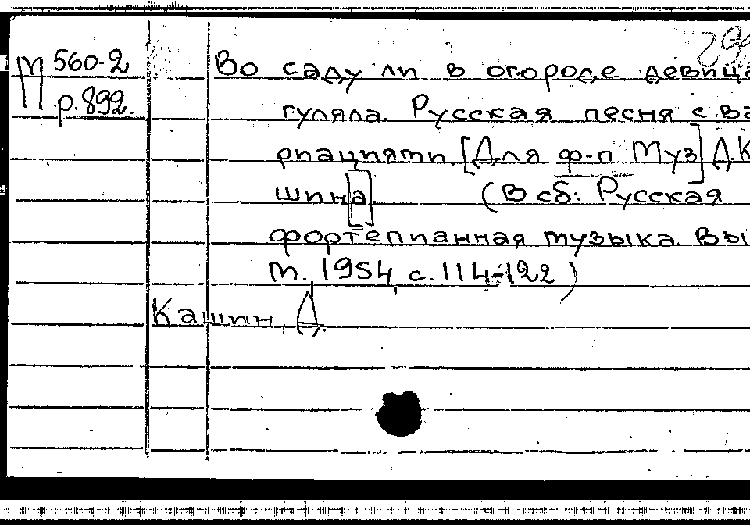 М 560-2
р.892.
Во саду ли в огороде девица
гуляла. Русская песня с ва
риациями. [Для ф-п Муз] Д К
шин[а] (В сб: Русская
фортепианная музыка. Вы
М. 1954, с. 114-122)
Кашин, Д.